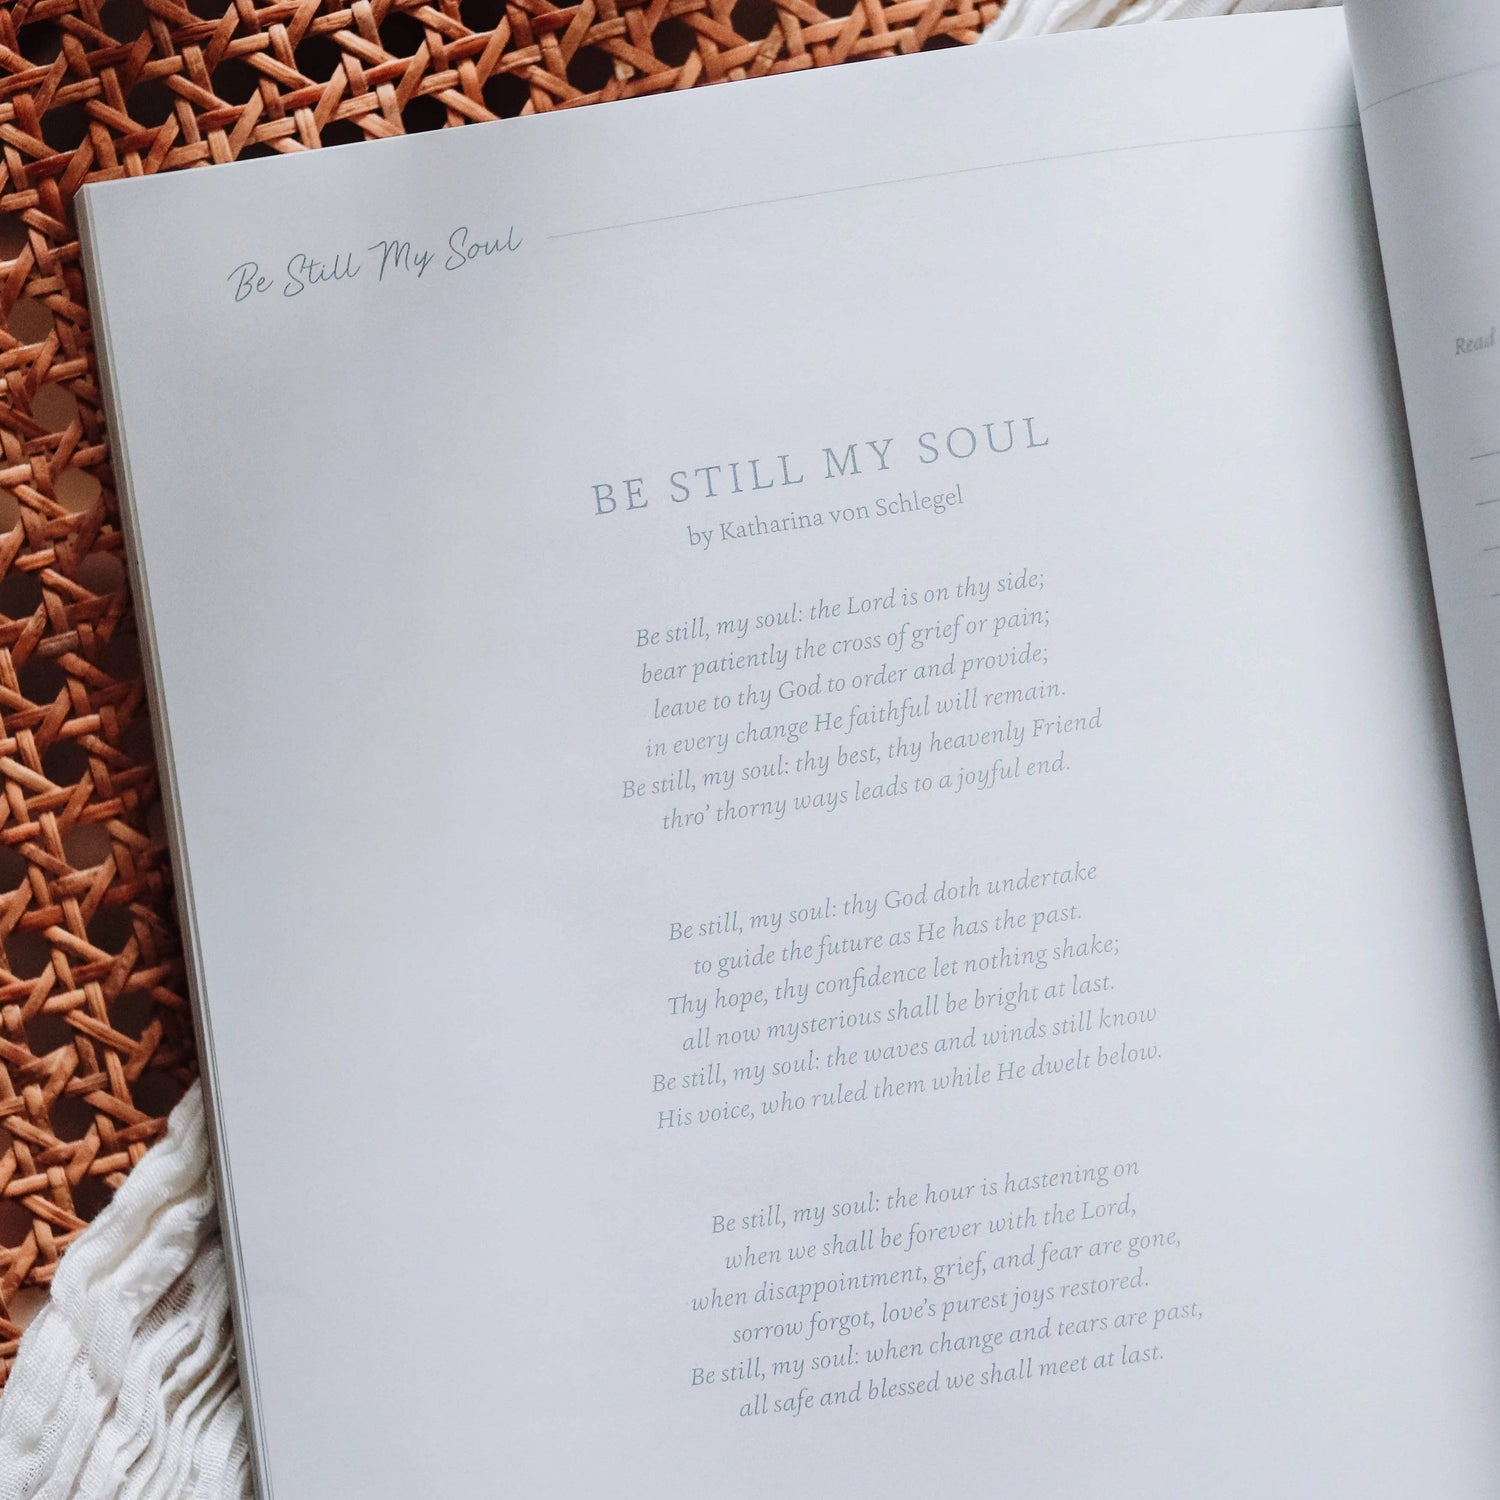 Be Still My Soul
BE STILL MY SOUL
by Katharina von Schlegel
Be still, my soul: the Lord is on thy side;
bear patiently the cross of grief or pain;
leave to thy God to order and provide;
in every change He faithful will remain.
Be still, my soul: thy best, thy heavenly Friend
thro’ thorny ways leads to a joyful end.
Be still, my soul: thy God doth undertake
to guide the future as He has the past.
Thy hope, thy confidence let nothing shake;
all now mysterious shall be bright at last.
Be still, my soul: the waves and winds still know
His voice, who ruled them while He dwelt below.
Be still, my soul: the hour is hastening on
when we shall be forever with the Lord,
when disappointment, grief, and fear are gone,
sorrow forgot, love’s purest joys restored.
Be still, my soul: when change and tears are past,
all safe and blessed we shall meet at last.
Read